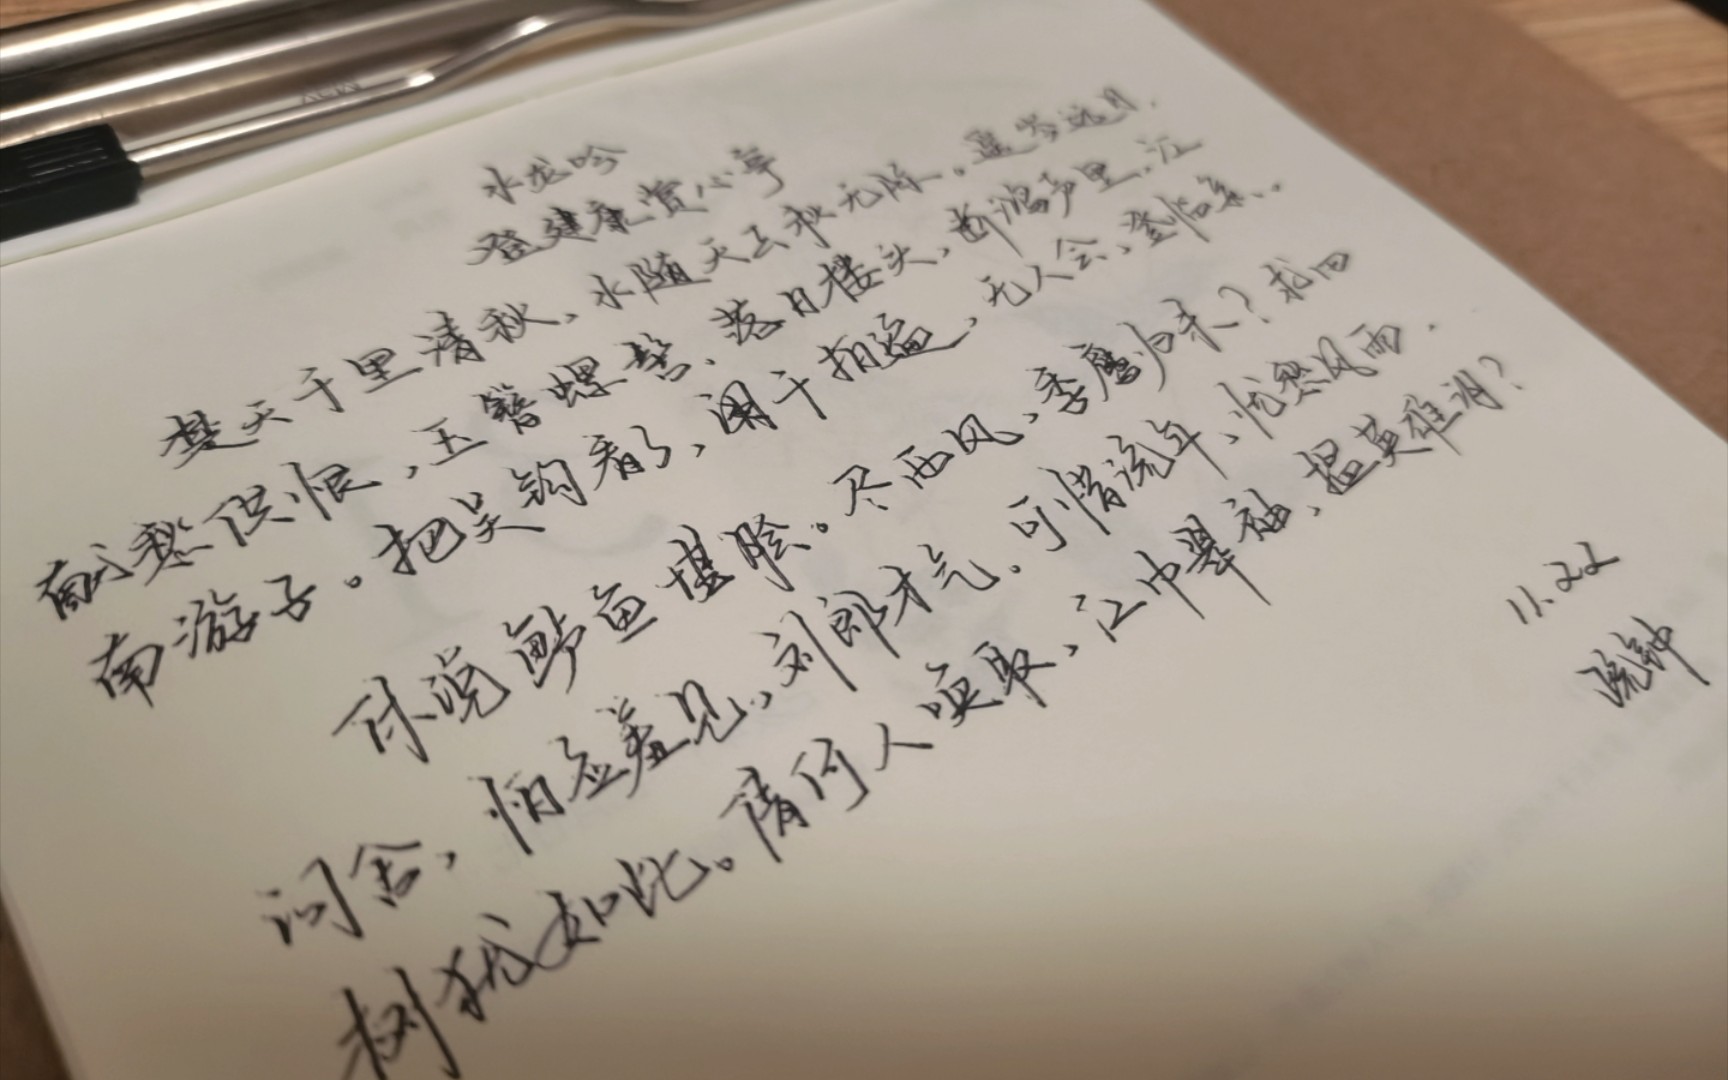 水龙吟
登建康赏心亭
楚天千里清秋、水随天去秋无际。遥岑远目,
献愁供恨,玉簪螺髻、落日楼头,断鸿声里,江
南游子。把吴钩看了,阑干拍遍,无人会,登临意..
休说鲈鱼堪脍。尽西风,季鹰归未?求田
问舍,怕应羞见,刘郎才气。可惜流年,忧愁风雨.
树犹如此。倩何人唤取,江中翠袖,揾英雄泪?
11.22